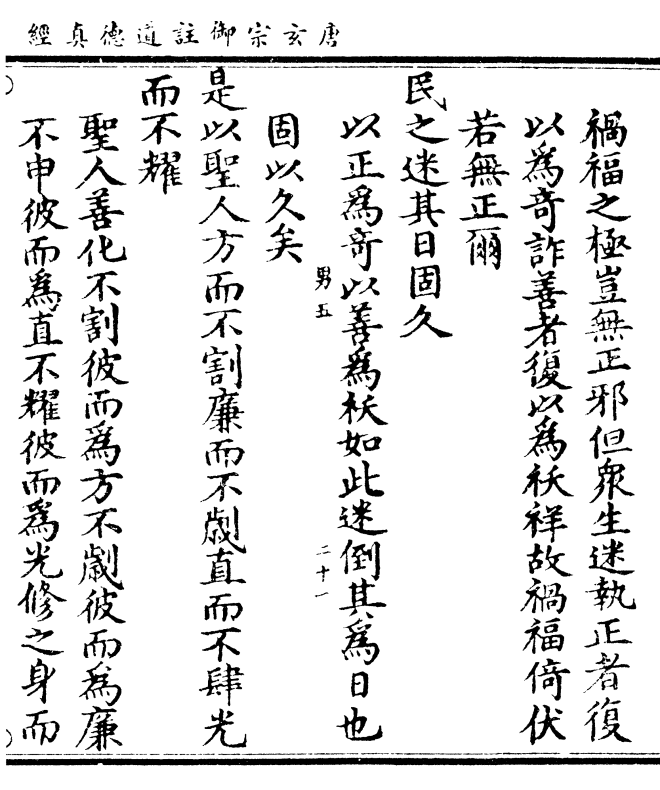 唐玄宗御註道德真經
禍福之極豈無正邪但衆生迷執正者復
以爲奇詐善者復以爲祅祥故禍福倚伏
若無正爾
民之迷其日固久
以正爲奇以善爲祅如此迷倒其爲日也
男五
二十一
固以久矣
是以聖人方而不割廉而不劌直而不肆光
而不耀
聖人善化不割彼而爲方不劌彼而爲廉
不申彼而爲直不耀彼而爲光修之身而